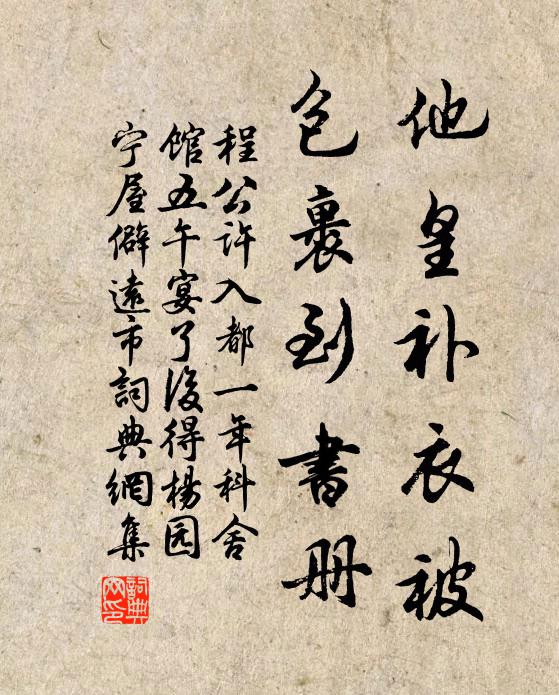 他皇补衣被
包裹到書册
程公許入都一年科舍
馆五午宴了後得楊园
宁屋僻遠市詞典網集